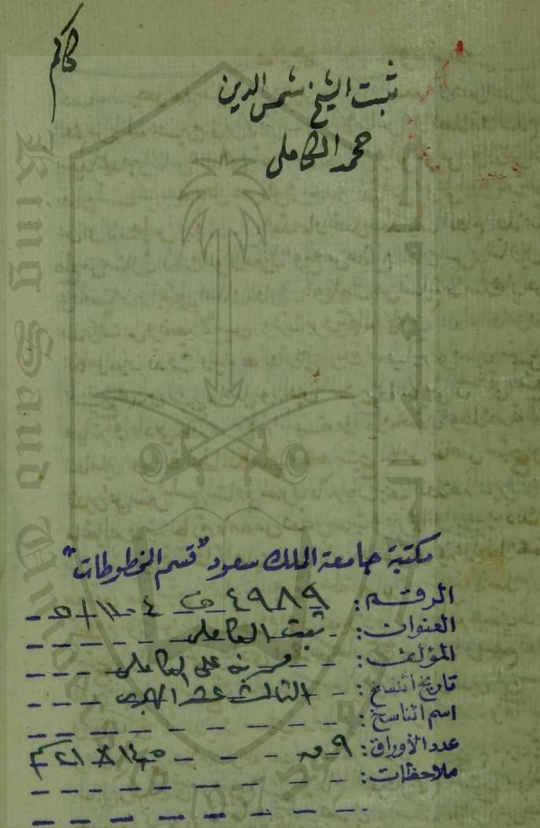 ثبت الشيخ شمس الدين
محمد الكاملي
مكتبة جامعة الملك سعود "قسم المخطوطات"
الرقم: ٤٩٨٩
العنوان: ثبت الكاملي
المؤلف: محمد بن علي الكاملي
تاريخ النسخ: الثالث عشر الهجري
اسم الناسخ:
عدد الأوراق: ٩
ملاحظات:
King Saud